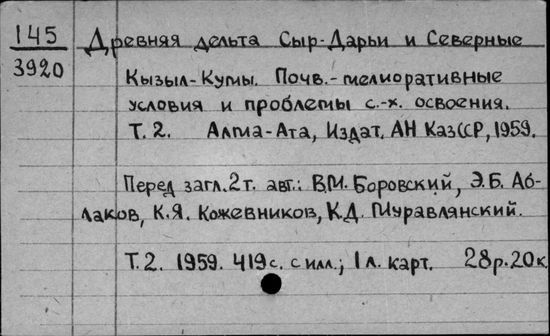 145
3920
Древняя дельта Сыр-Дарьи и Северные
Кызыл-Кумы. Почв.-мелиоративные
условия и проблемы с.-х. освоения.
Т. 2. Алма-Ата, Издат. АН КазССР, 1959.
Перед загл. 2 т. авт.: В.М. Боровский, Э.Б. Аб-
лаков, К.Я. Кожевников, К.Д. Муравлянский.
Т. 2. 1959. 419 с. с илл.; 1 л. карт. 28 р. 20 к